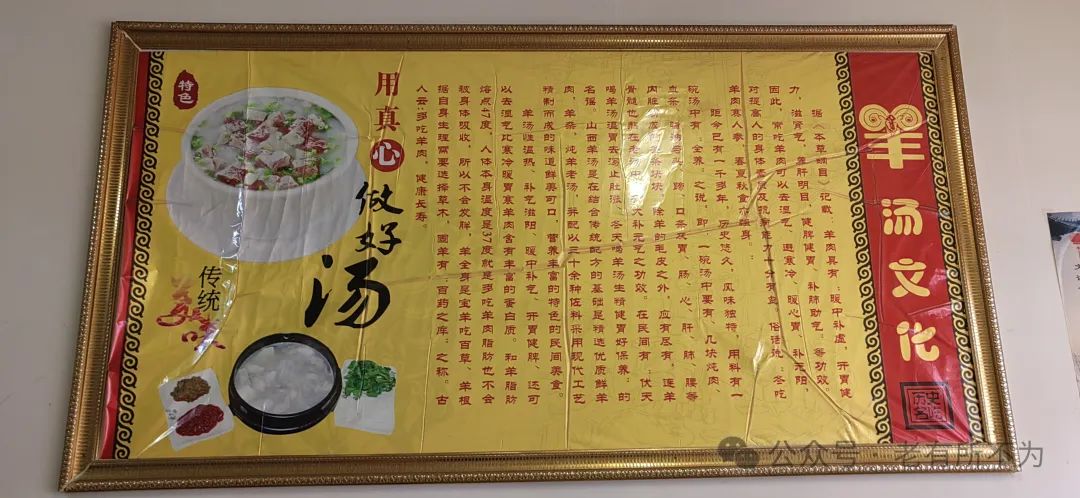 羊汤文化
据《本草纲目》记载，羊肉具有：暖中补虚，开胃健
力，滋肾气，养肝明目，健脾健胃，补肺助气，等功效。
因此，常吃羊肉可以去湿气，避寒冷，暖心胃，补元阳，
对提高人的身体素质及抗病能力十分有益。俗话说：冬吃
羊肉赛人参，春夏秋食亦强身。
距今已有一千多年，历史悠久，风味独特，用料有一
碗汤中有，全养：之说，即：一碗汤中要有，几块炖肉、
血条、骨头、蹄、口条皮胃、肠、心、肝、肺、腰等
内脏，条块状，除羊的毛皮之外，应有尽有，连羊
骨髓也熬在汤中，有大补元气之功效。在民间有：伏天
喝羊汤温胃去泻止肚胀，冬天喝羊汤生精健胃好保养：的
名谣。山西羊汤是在结合传统配方的基础是精选优质鲜羊
肉，羊杂，炖羊老汤，并配以三十余种佐料采用现代工艺
精制而成的味道鲜美可口，营养丰富的特色的民间美食。
羊汤性温热、补气滋阴、暖中补气、开胃健脾、还可
以去湿气比寒冷暖胃寒羊肉含有丰富的蛋白质。和羊脂肪
熔点47度，人体本身温度是37度就是多吃羊肉脂肪也不会
被身体吸收，所以不会发胖。羊全身是宝羊吃百草、羊根
据自身生理需要选择草木，固羊有：百药之库：之称。古
人云：多吃羊肉，健康长寿。
用真心
做好汤
特色
传统
美味
公众号·老有所不为